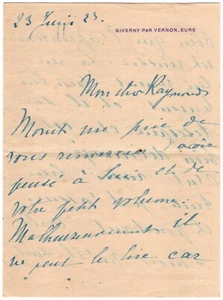 23 Juin 23.
GIVERNY PAR VERNON, EURE
Mon cher Raymond
Monet me prie de
vous remercier d'avoir
pensé à lui et
votre petit volume.
Malheureusement il
ne peut le lire car